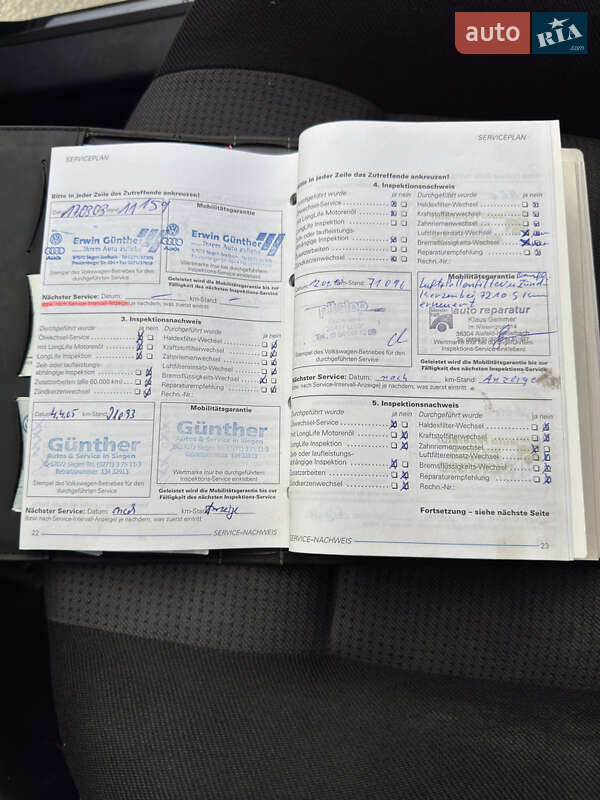 auto RIA .com
SERVICEPLAN
Bitte in jeder Zeile das Zutreffende ankreuzen!
Mobilitätsgarantie
Erwin Günther
...Ihrem Auto zuliebe
Audi
Erwin Günther
...Ihrem Auto zuliebe
Audi
Stempel des Volkswagen-Betriebes für den
durchgeführten Service
Wertmarke (nur bei durchgeführtem
Inspektions-Service einkleben)
Geleistet wird die Mobilitätsgarantie bis zur
Fälligkeit des nächsten Inspektions-Service
Nächster Service: Datum: km-Stand:
Bzw. nach Service-Intervall-Anzeige je nachdem, was zuerst eintritt
3. Inspektionsnachweis
Durchgeführt wurde ja nein
Ölwechsel-Service
mit LongLife Motorenöl
LongLife Inspektion
Zeit- oder laufleistungs-
abhängige Inspektion
Zusatzarbeiten (alle 60.000 km)
Zündkerzenwechsel
Durchgeführt wurde ja nein
Haldexfilter-Wechsel
Kraftstofffilter-Wechsel
Zahnriemenwechsel
Luftfiltereinsatz-Wechsel
Bremsflüssigkeits-Wechsel
Reparaturempfehlung
Rechn.-Nr.:
Datum: 4.4.05 km-Stand:
Günther
Autos & Service in Siegen
Mobilitätsgarantie
Günther
Autos & Service in Siegen
Stempel des Volkswagen-Betriebes für den
durchgeführten Service
Wertmarke (nur bei durchgeführtem
Inspektions-Service einkleben)
Geleistet wird die Mobilitätsgarantie bis zur
Fälligkeit des nächsten Inspektions-Service
Nächster Service: Datum: nach km-Stand: Anzeige
Bzw. nach Service-Intervall-Anzeige je nachdem, was zuerst eintritt
22 SERVICE-NACHWEIS
SERVICEPLAN
Bitte in jeder Zeile das Zutreffende ankreuzen!
4. Inspektionsnachweis
Durchgeführt wurde ja nein
Ölwechsel-Service
mit LongLife Motorenöl
LongLife Inspektion
Zeit- oder laufleistungs-
abhängige Inspektion
Zusatzarbeiten
Zündkerzenwechsel
Durchgeführt wurde ja nein
Haldexfilter-Wechsel
Kraftstofffilter-Wechsel
Zahnriemenwechsel
Luftfiltereinsatz-Wechsel
Bremsflüssigkeits-Wechsel
Reparaturempfehlung
Rechn.-Nr.:
71096
Mobilitätsgarantie
auto reparatur
Klaus Gemmer
Stempel des Volkswagen-Betriebes für den
durchgeführten Service
Wertmarke (nur bei durchgeführtem
Inspektions-Service einkleben)
Geleistet wird die Mobilitätsgarantie bis zur
Fälligkeit des nächsten Inspektions-Service
Nächster Service: Datum: nach km-Stand: Anzeige
Bzw. nach Service-Intervall-Anzeige je nachdem, was zuerst eintritt
5. Inspektionsnachweis
Durchgeführt wurde ja nein
Ölwechsel-Service
mit LongLife Motorenöl
LongLife Inspektion
Zeit- oder laufleistungs-
abhängige Inspektion
Zusatzarbeiten
Zündkerzenwechsel
Durchgeführt wurde ja nein
Haldexfilter-Wechsel
Kraftstofffilter-Wechsel
Zahnriemenwechsel
Luftfiltereinsatz-Wechsel
Bremsflüssigkeits-Wechsel
Reparaturempfehlung
Rechn.-Nr.:
Fortsetzung – siehe nächste Seite
SERVICE-NACHWEIS 23